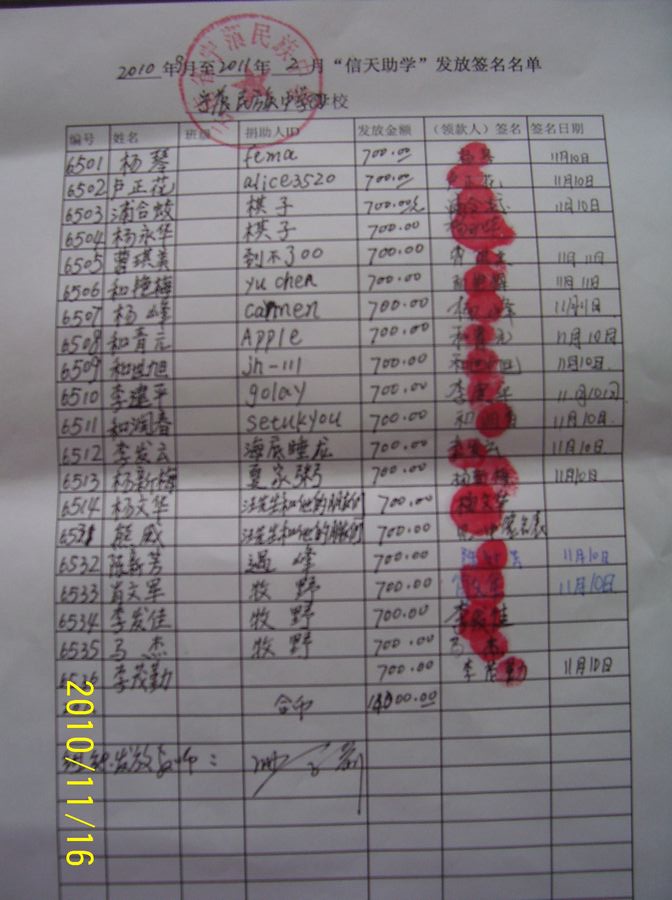 2010 年9月至2011年 2 月“信天助学”发放签名名单
宁蒗民族中学 学校
编号 姓名 班级 捐助人ID 发放金额 （领款人）签名 签名日期
6501 杨琴 fema 700.00 11月10日
6502 卢正花 alice3520 700.00 11月10日
6503 浦合 棋子 700.00元 11月10日
6504 杨永华 棋子 700.00
6505 曹琪美 到不了300 700.00 11月11日
6506 和艳梅 yu chen 700.00 11月11日
6507 杨峰 carmen 700.00 11月11日
6508 和青元 Apple 700.00 11月10日
6509 和世旭 jh-111 700.00 11月10日
6510 李建平 golay 700.00 11月10日
6511 和润春 setukyou 700.00 11月10日
6512 李发云 海底睡龙 700.00 11月10日
6513 杨新梅 夏家粥 700.00 杨新梅 11月10日
6514 杨文华 汪先生和他的朋友们 700.00 杨文华
6531 熊威 汪先生和他的朋友们 700.00
6532 陈新芳 过峰 700.00 11月10日
6533 肖文军 牧野 700.00 11月10日
6534 李发佳 牧野 700.00 李发佳
6535 马杰 牧野 700.00 马杰
6536 李茂勤 700.00 李茂勤 11月10日
合计 14000.00
2010/11/16